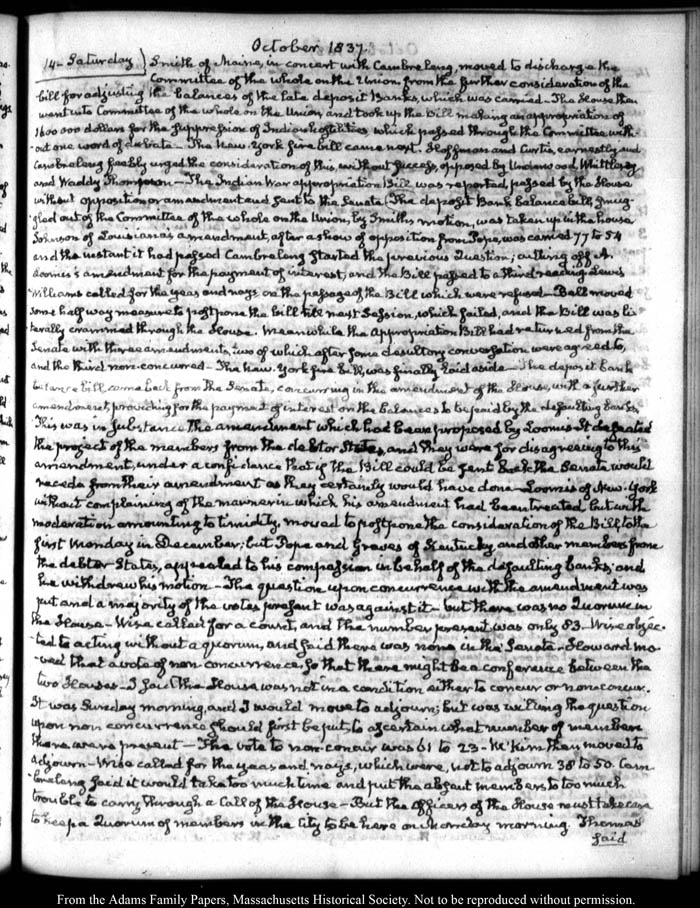 October 1837.
14- Saturday} Smith of Maine, in concert with Cambreleng, moved to discharge the
Committee of the whole on the Union from the further consideration of the
bill for adjusting the balances of the late deposit Banks, which was carried - The House then
went into Committee of the whole on the Union, and took up the bill making an appropriation of
1600 000 dollars for the suppression of Indian hostilities which passed through the Committee with-
out one word of debate - The New-York fire bill came next. Hoffman and Curtis, earnestly and
Cambreleng feebly urged the consideration of this, without success, opposed by Underwood, Whittlesey
and Waddy Thompson - The Indian War appropriation Bill was reported, passed by the House
without opposition or amendment and sent to the Senate. The deposit Bank balance bill, smug-
gled out of the Committee of the whole on the Union, by Smith's motion, was taken up in the house
Johnson of Louisiana's amendment, after a show of opposition from Pope, was carried 77 to 54
and the instant it had passed Cambreleng started the previous Question; cutting off A.
Loomis's amendment for the payment of interest, and the Bill passed to a third reading Lewis
Williams called for the yeas and nays on the passage of the Bill which were refused - Bell moved
some half way measure to postpone the bill till next Session, which failed, and the Bill was li-
terally crammed through the House. Meanwhile the Appropriation Bill had returned from the
Senate with three amendments, two of which after some desultory conversation were agreed to,
and the third non-concurred - The New-York fire bill, was finally laid aside - The deposit Bank
balance bill came back from the Senate, concurring in the amendment of the House, with a further
amendment, providing for the payment of interest on the balances to be paid by the defaulting banks.
This was in substance the amendment which had been proposed by Loomis It defeated
the project of the members from the debtor States, and they were for disagreeing to this
amendment, under a confidence that if the Bill could be sent back the Senate would
recede from their amendment as they certainly would have done - Loomis of New-York
without complaining of the manner in which his amendment had been treated, but with
moderation amounting to timidity, moved to postpone the consideration of the Bill to the
first Monday in December; but Pope and Graves of Kentucky and other members from
the debtor States, appealed to his compassion in behalf of the defaulting banks; and
he withdrew his motion - The question upon concurrence with the amendment was
put and a majority of the votes present was against it - but there was no Quorum in
the House - Wise called for a count, and the number present was only 83 - Wise objec-
ted to acting without a quorum, and said there was none in the Senate - Howard mo-
ved that a vote of non concurrence, so that there might be a conference between the
two Houses - I said the House was not in a condition either to concur or non concur.
It was Sunday morning, and I would move to adjourn; but was willing the question
upon non concurrence should first be put, to ascertain what number of members
there were present - The vote to non-concur was 61 to 23 - McKim then moved to
adjourn - Wise called for the yeas and nays, which were, not to adjourn 38 to 50. Cam-
breleng said it would take too much time and put the absent members to too much
trouble to carry through a Call of the House - But the officers of the House must take care
to keep a Quorum of members in the City to be here on Monday morning. Thomas
said
From the Adams Family Papers, Massachusetts Historical Society. Not to be reproduced without permission.